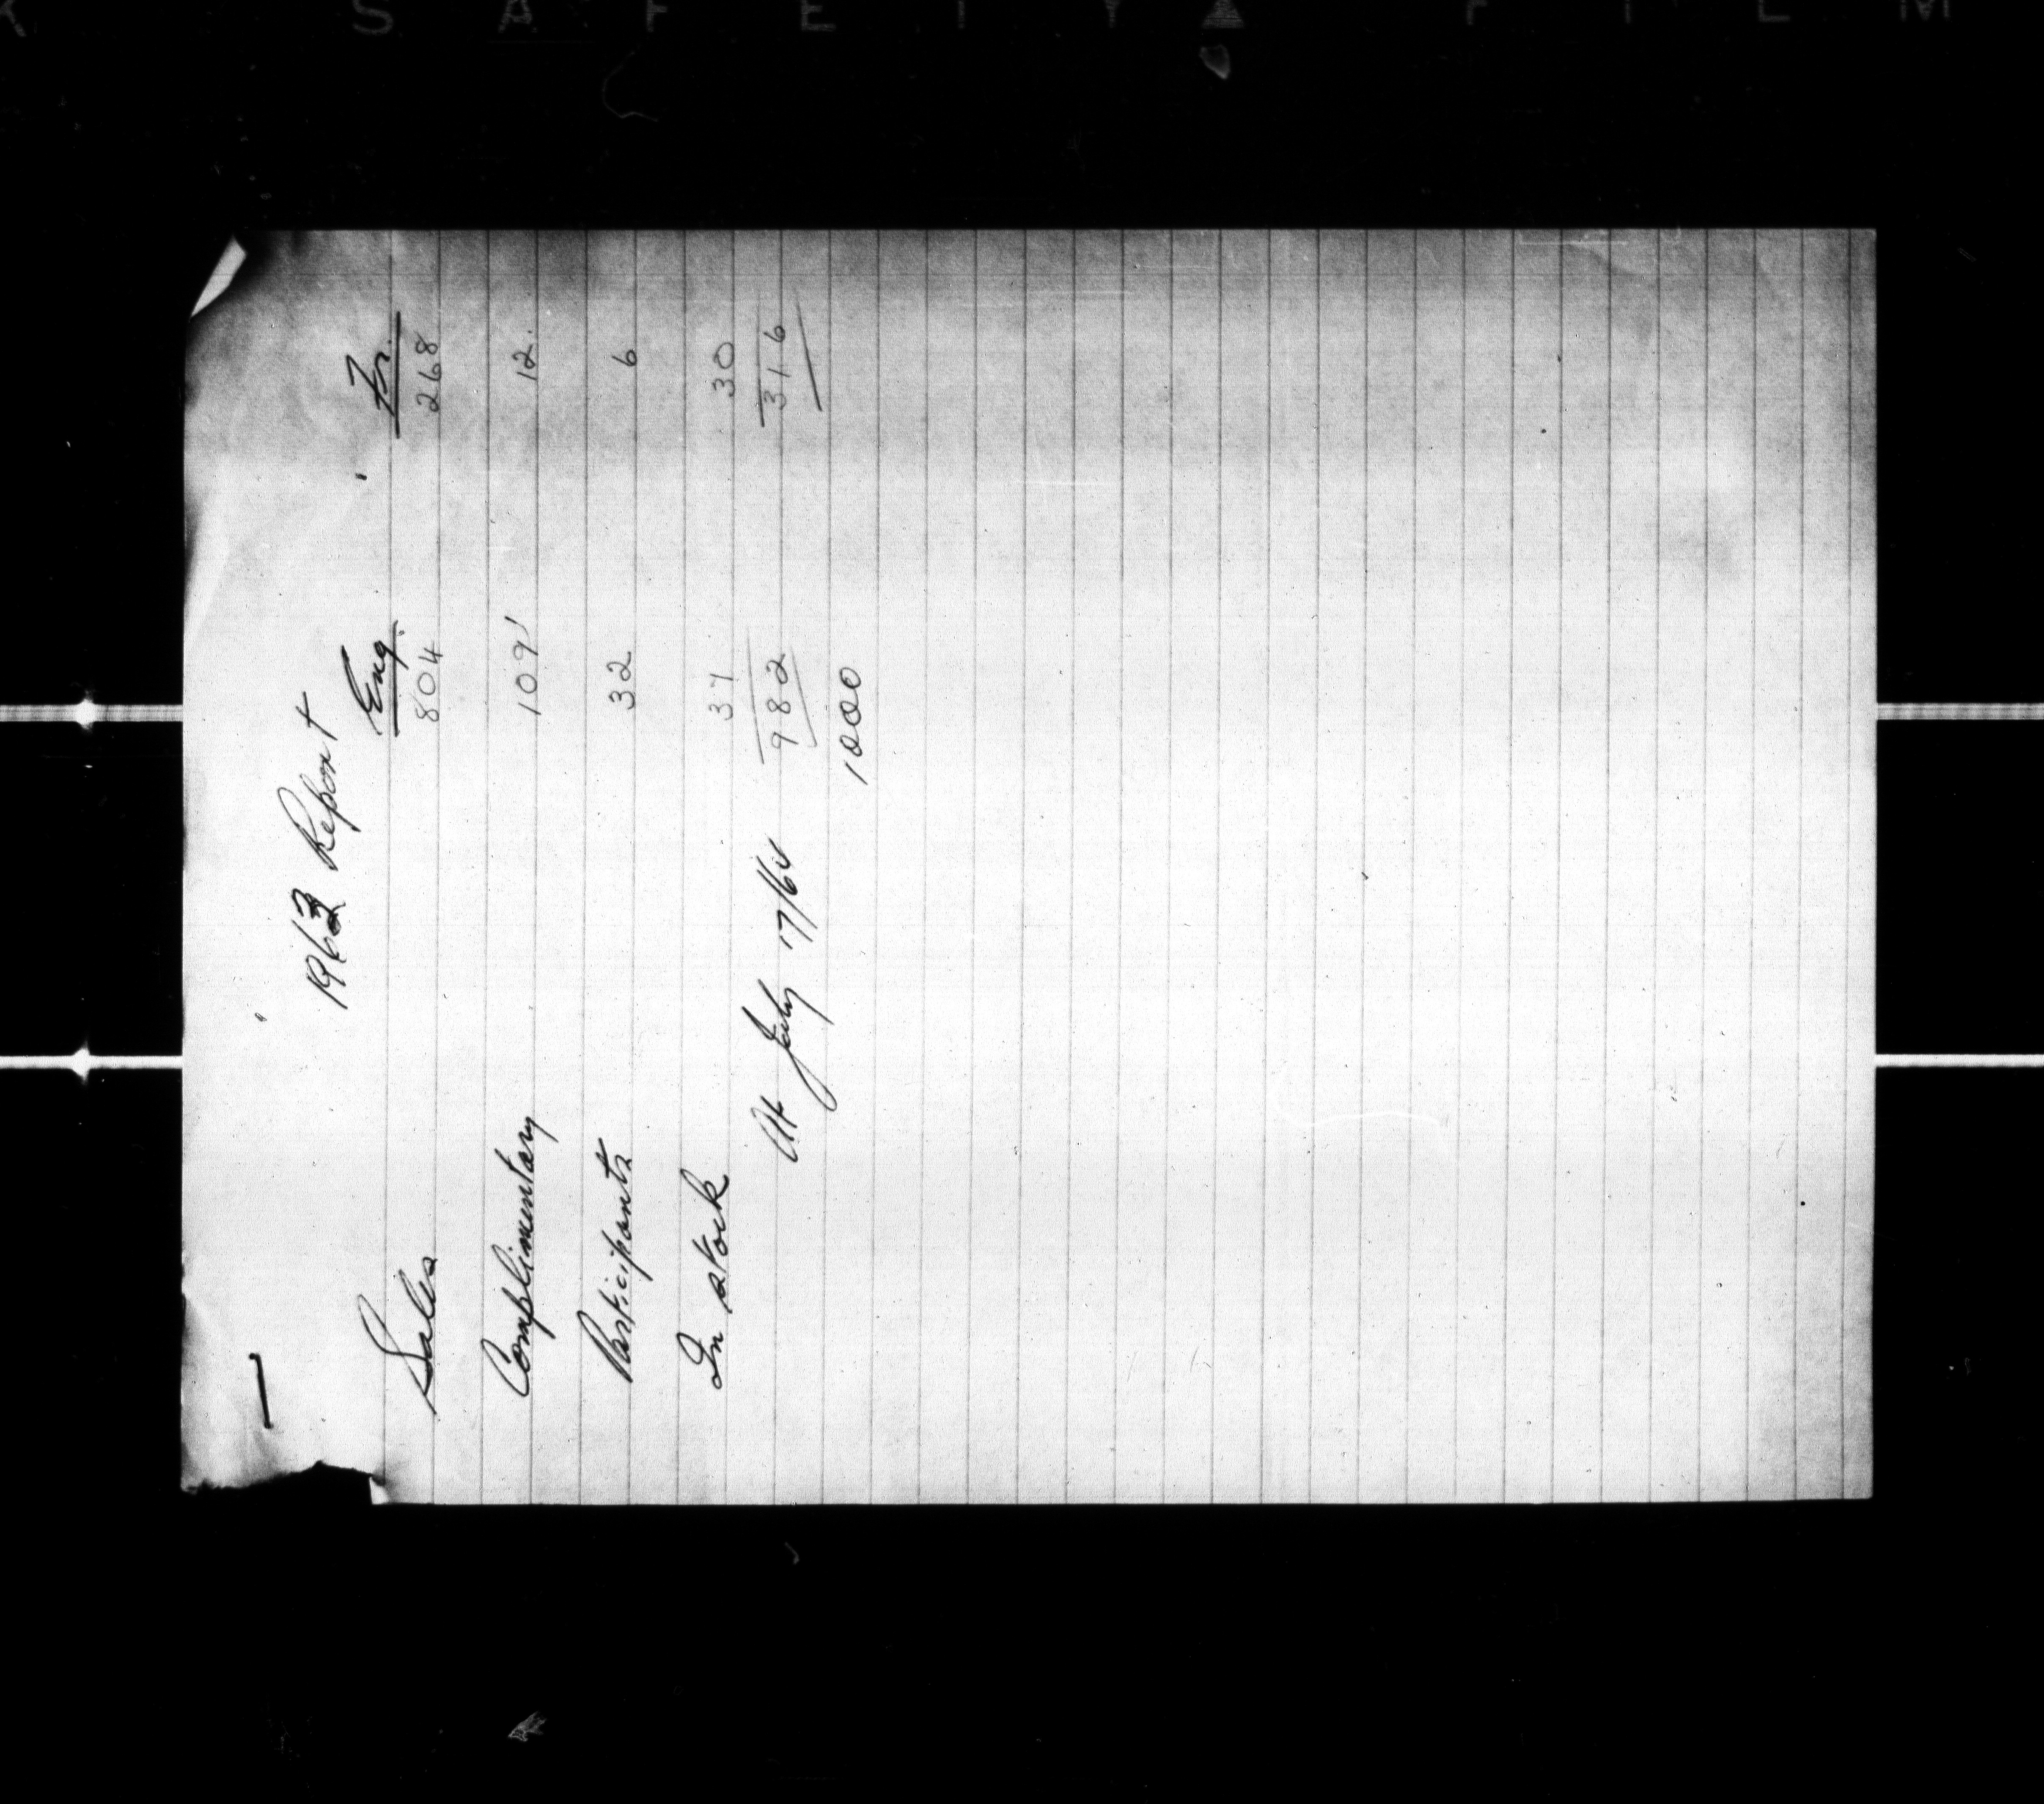 SAFETY FILM
1963 Report
Eng. Fr.
Sales 804 268
Complimentary 109 12
Participants 32 6
In stock 37 30
At July 17/64 982 316
1000